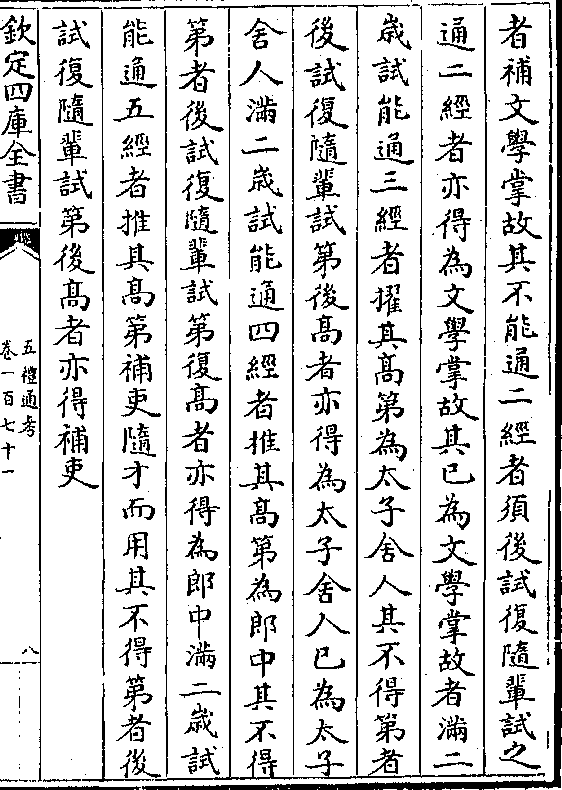 者補文學掌故其不能通二經者須後試復隨輩試之
通二經者亦得為文學掌故其已為文學掌故者滿二
歲試能通三經者擢其高第為太子舍人其不得第者
後試復隨輩試第後高者亦得為太子舍人已為太子
舍人滿二歲試能通四經者推其高第為郎中其不得
第者後試復隨輩試第復高者亦得為郎中滿二歲試
能通五經者推其高第補吏隨才而用其不得第者後
試復隨輩試第後高者亦得補吏
欽定四庫全書
五禮通考
卷一百七十一
八